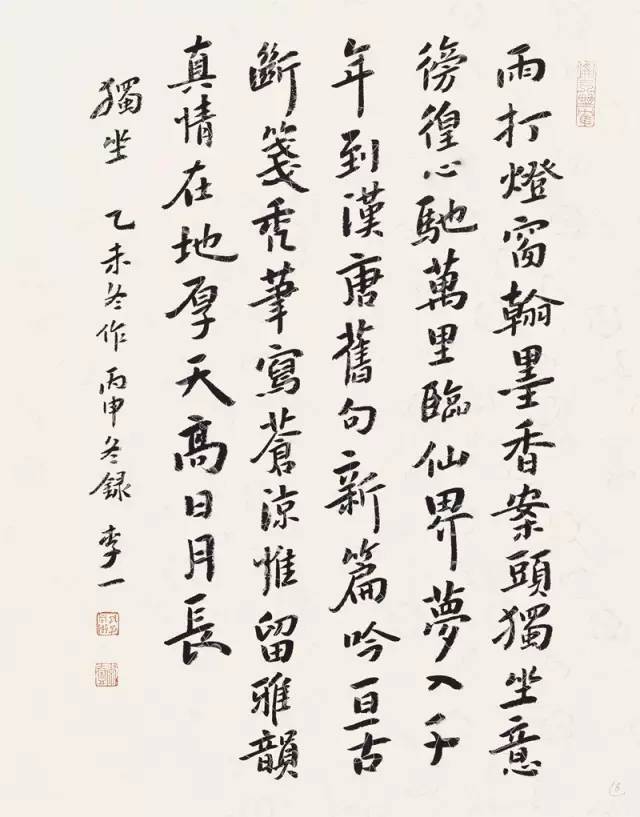 雨打燈窗翰墨香案頭獨坐意
徬徨心馳萬里臨仙界夢入千
年到漢唐舊句新篇吟亘古
斷箋禿筆寫蒼涼惟留雅韻
真情在地厚天高日月長
獨坐 乙未冬作 丙申冬録 李一